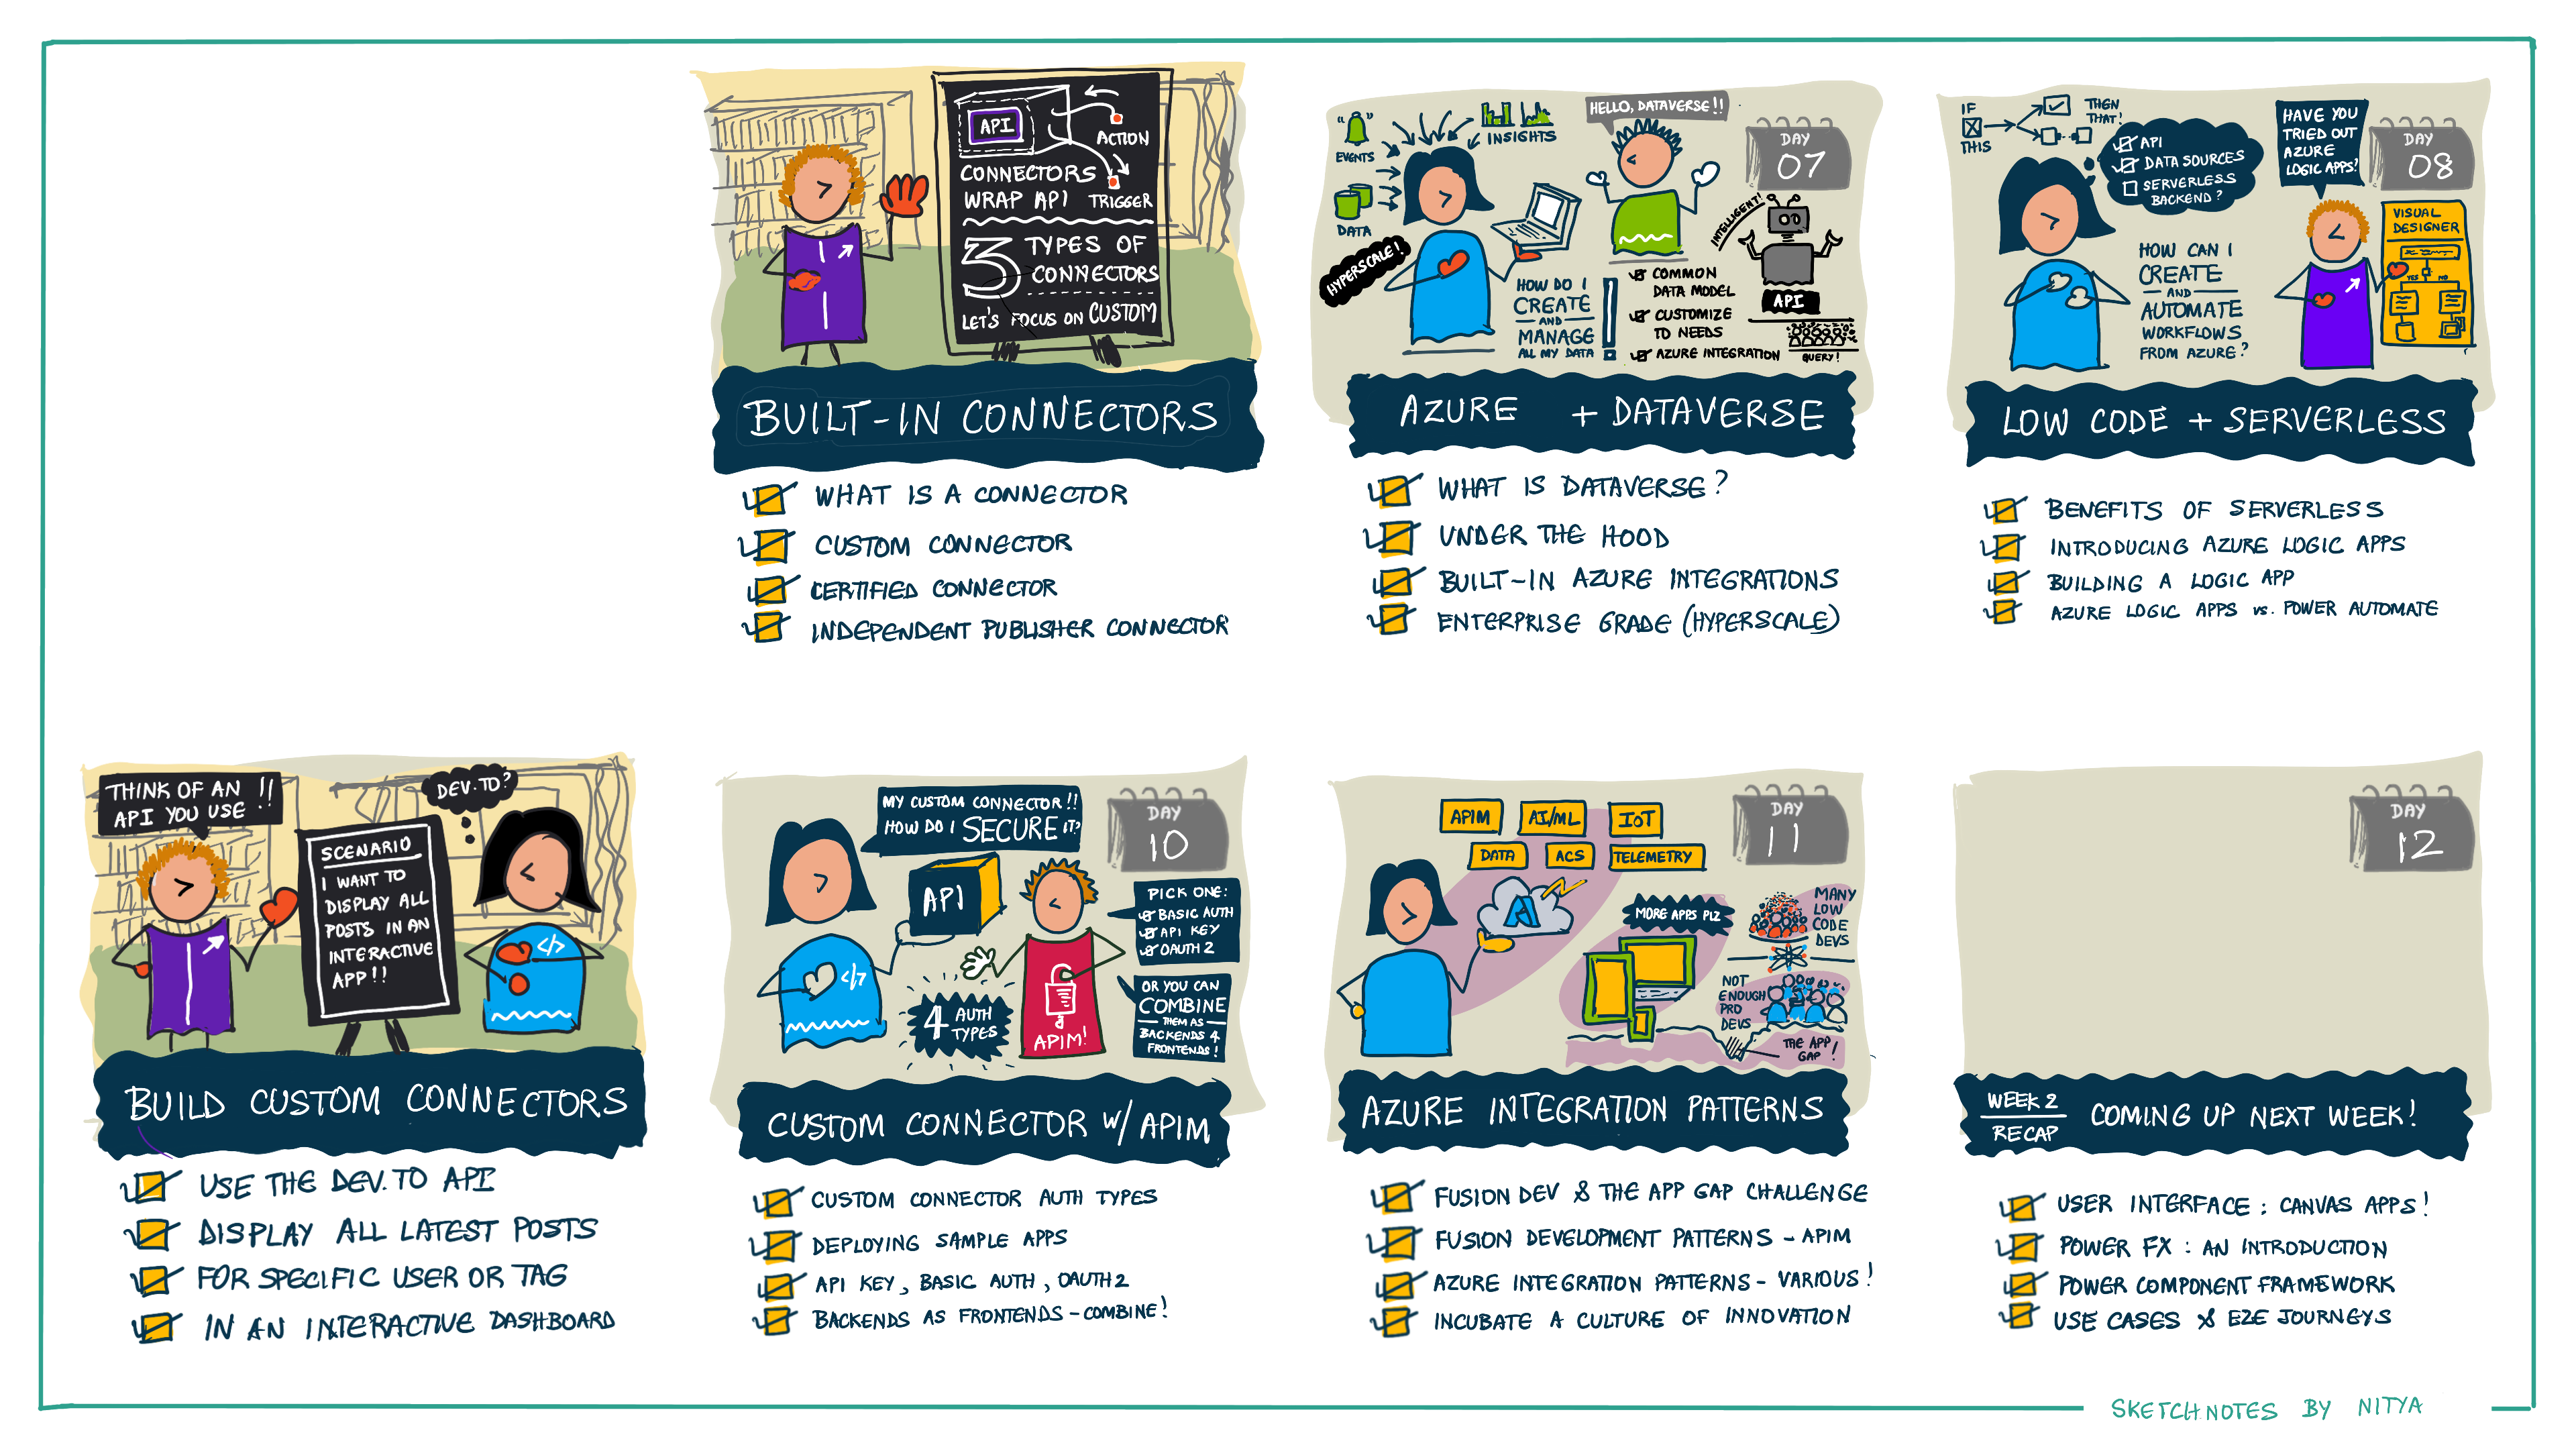 API
ACTION
CONNECTORS
WRAP API
TRIGGER
3 TYPES OF
CONNECTORS
LET'S FOCUS ON CUSTOM
BUILT-IN CONNECTORS
WHAT IS A CONNECTOR
CUSTOM CONNECTOR
CERTIFIED CONNECTOR
INDEPENDENT PUBLISHER CONNECTOR
"EVENTS"
INSIGHTS
HELLO, DATAVERSE!!
DAY
07
DATA
HYPERSCALE!
INTELLIGENT!
HOW DO I
CREATE
AND
MANAGE
ALL MY DATA
COMMON
DATA MODEL
CUSTOMIZE
TO NEEDS
AZURE INTEGRATION
API
QUERY!
AZURE + DATAVERSE
WHAT IS DATAVERSE?
UNDER THE HOOD
BUILT-IN AZURE INTEGRATIONS
ENTERPRISE GRADE (HYPERSCALE)
IF
THIS
THEN
THAT!
API
DATA SOURCES
SERVERLESS
BACKEND?
HAVE YOU
TRIED OUT
AZURE
LOGIC APPS?
DAY
08
HOW CAN I
CREATE
AND
AUTOMATE
WORKFLOWS
FROM AZURE?
VISUAL
DESIGNER
YES NO
LOW CODE + SERVERLESS
BENEFITS OF SERVERLESS
INTRODUCING AZURE LOGIC APPS
BUILDING A LOGIC APP
AZURE LOGIC APPS vs. POWER AUTOMATE
THINK OF AN !!
API YOU USE
DEV.TO?
SCENARIO
I WANT TO
DISPLAY ALL
POSTS IN AN
INTERACTIVE
APP!!
</>
BUILD CUSTOM CONNECTORS
USE THE DEV.TO API
DISPLAY ALL LATEST POSTS
FOR SPECIFIC USER OR TAG
IN AN INTERACTIVE DASHBOARD
MY CUSTOM CONNECTOR!!
HOW DO I SECURE IT?
DAY
10
API
PICK ONE:
BASIC AUTH
API KEY
OAUTH2
</>
4 AUTH
TYPES
APIM!
OR YOU CAN
COMBINE
THEM AS
BACKENDS 4
FRONTENDS!
CUSTOM CONNECTOR W/ APIM
CUSTOM CONNECTOR AUTH TYPES
DEPLOYING SAMPLE APPS
API KEY, BASIC AUTH, OAUTH2
BACKENDS AS FRONTENDS - COMBINE!
APIM
AI/ML
IoT
DATA
ACS
TELEMETRY
DAY
11
MORE APPS PLZ
MANY
LOW
CODE
DEVS
NOT
ENOUGH
PRO
DEVS
THE APP
GAP!
AZURE INTEGRATION PATTERNS
FUSION DEV & THE APP GAP CHALLENGE
FUSION DEVELOPMENT PATTERNS - APIM
AZURE INTEGRATION PATTERNS - VARIOUS!
INCUBATE A CULTURE OF INNOVATION
DAY
12
WEEK 2
RECAP
COMING UP NEXT WEEK!
USER INTERFACE: CANVAS APPS!
POWER FX: AN INTRODUCTION
POWER COMPONENT FRAMEWORK
USE CASES & E2E JOURNEYS
SKETCHNOTES BY NITYA